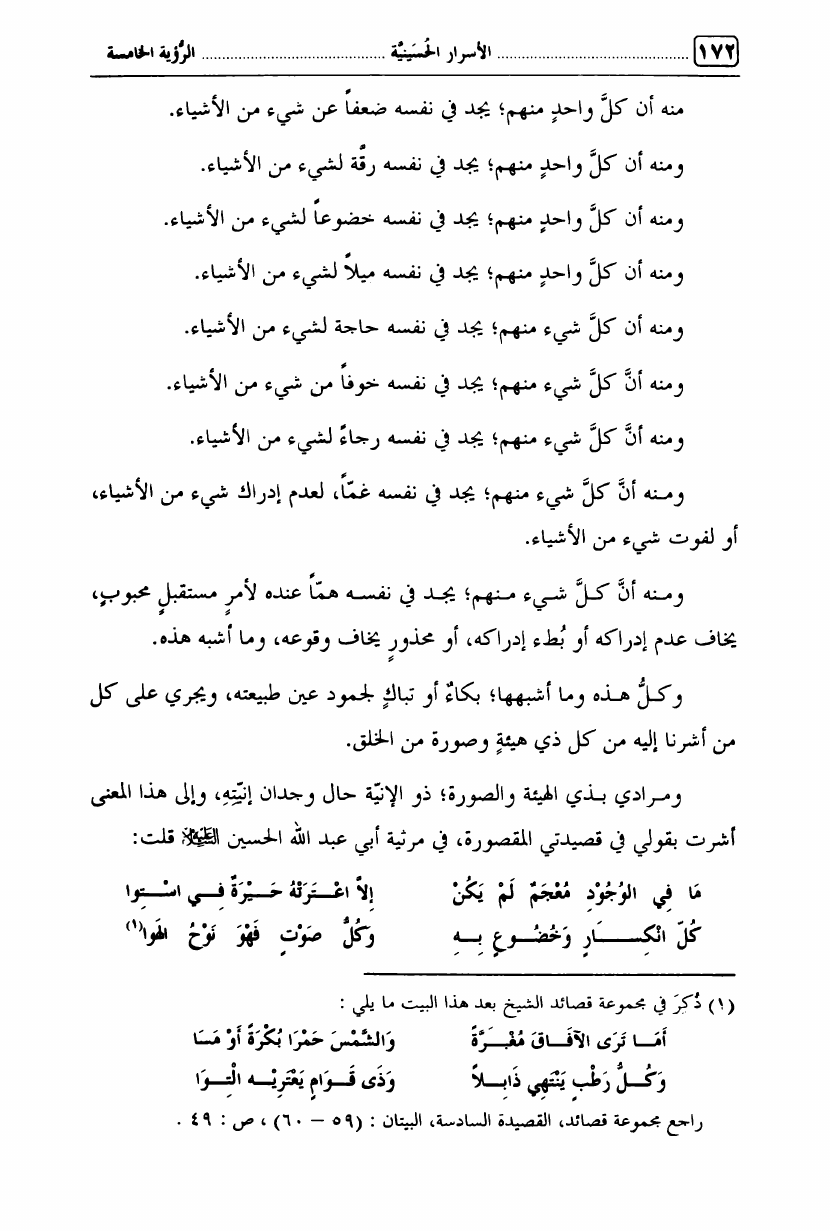 ١٧٢ ........................................ الأسرار الحُسَينيَّة ........................................ الرُّؤية الخامسة
منه أن كلَّ واحدٍ منهم؛ يجد في نفسه ضعفاً عن شيء من الأشياء.
ومنه أن كلَّ واحدٍ منهم؛ يجد في نفسه رقّة لشيء من الأشياء.
ومنه أن كلَّ واحدٍ منهم؛ يجد في نفسه خضوعاً لشيء من الأشياء.
ومنه أن كلَّ واحدٍ منهم؛ يجد في نفسه ميلاً لشيء من الأشياء.
ومنه أن كلَّ شيء منهم؛ يجد في نفسه حاجة لشيء من الأشياء.
ومنه أنَّ كلَّ شيء منهم؛ يجد في نفسه خوفاً من شيء من الأشياء.
ومنه أنَّ كلَّ شيء منهم؛ يجد في نفسه رجاءً لشيء من الأشياء.
ومنه أنَّ كلَّ شيء منهم؛ يجد في نفسه غمّاً، لعدم إدراك شيء من الأشياء،
أو لفوت شيء من الأشياء.
ومنه أنَّ كلَّ شيء منهم؛ يجد في نفسه همّاً عنده لأمرٍ مستقبلٍ محبوبٍ،
يخاف عدم إدراكه أو بُطء إدراكه، أو محذورٍ يخاف وقوعه، وما أشبه هذه.
وكلُّ هذه وما أشبهها؛ بكاءٌ أو تباكٍ لجمود عين طبيعته، ويجري على كل
من أشرنا إليه من كل ذي هيئةٍ وصورة من الخلق.
ومرادي بذي الهيئة والصورة؛ ذو الإنيّة حال وجدان إنيّتِهِ، وإلى هذا المعنى
أشرت بقولي في قصيدتي المقصورة، في مرثية أبي عبد الله الحسين عليه السلام قلت:
مَا فِي الوُجُوْدِ مُعْجَمٌ لَمْ يَكُنْ إلاَّ اعْتَرَتْهُ حَيْرَةٌ فِي اسْتِوا
كُلّ انْكِسَارٍ وَخُضُوعٍ بِهِ وَكُلُّ صَوْتٍ فَهْوَ نَوْحُ الهَوا(١)
(١) ذُكِرَ في مجموعة قصائد الشيخ بعد هذا البيت ما يلي :
أَمَا تَرَى الآفَاقَ مُغْبَرَّةً وَالشَّمْسَ حَمْرَا بُكْرَةً أَوْ مَسَا
وَكُلُّ رَطْبٍ يَنْتَهِي ذَابِلاً وَذَى قَوَامٍ يَعْتَرِيْهِ الْتِوَا
راجع مجموعة قصائد، القصيدة السادسة، البيتان : (٥٩ – ٦٠) ، ص : ٤٩ .